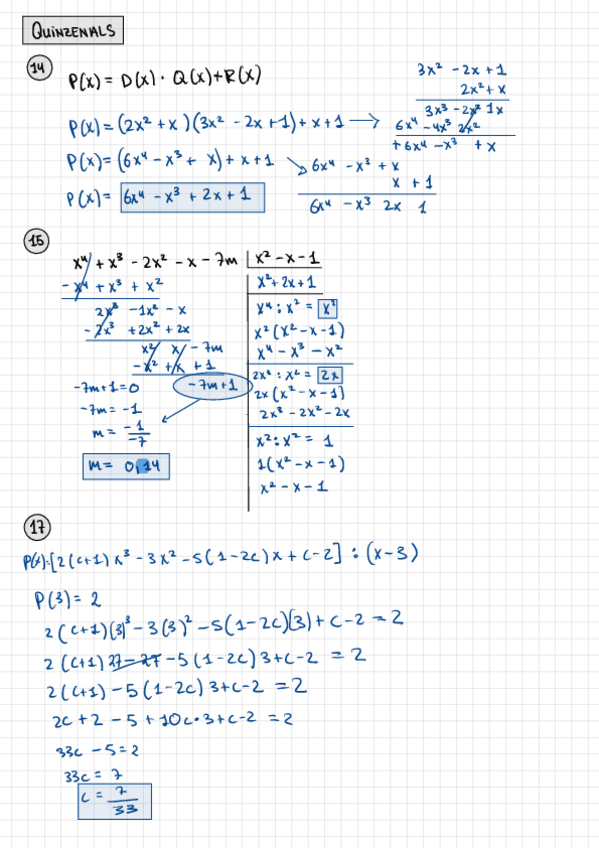 QUINZENALS
14
P(x) = D(x) · Q(x) + R(x)
P(x) = (2x² + x)(3x² - 2x + 1) + x + 1 →
P(x) = (6x⁴ - x³ + x) + x + 1
P(x) = 6x⁴ - x³ + 2x + 1
3x² - 2x + 1
2x² + x
3x³ - 2x² 1x
6x⁴ - 4x³ 2x²
+ 6x⁴ - x³ + x
6x⁴ - x³ + x
x + 1
6x⁴ - x³ 2x 1
15
x⁴ + x³ - 2x² - x - 7m | x² - x - 1
- x⁴ + x³ + x²
2x³ - 1x² - x
- 2x³ + 2x² + 2x
x² x - 7m
- x² + x + 1
- 7m + 1
-7m + 1 = 0
-7m = -1
m = -1/-7
m = 0,14
x² + 2x + 1
x⁴ : x² = x²
x² (x² - x - 1)
x⁴ - x³ - x²
2x³ : x² = 2x
2x (x² - x - 1)
2x³ - 2x² - 2x
x² : x² = 1
1(x² - x - 1)
x² - x - 1
17
P(x): [2(c+1) x³ - 3x² - 5(1 - 2c) x + c - 2] : (x - 3)
P(3) = 2
2(c+1)(3)³ - 3(3)² - 5(1 - 2c)(3) + c - 2 = 2
2(c+1) 27 - 27 - 5(1 - 2c) 3 + c - 2 = 2
2(c+1) - 5(1 - 2c) 3 + c - 2 = 2
2c + 2 - 5 + 10c · 3 + c - 2 = 2
33c - 5 = 2
33c = 7
c = 7/33